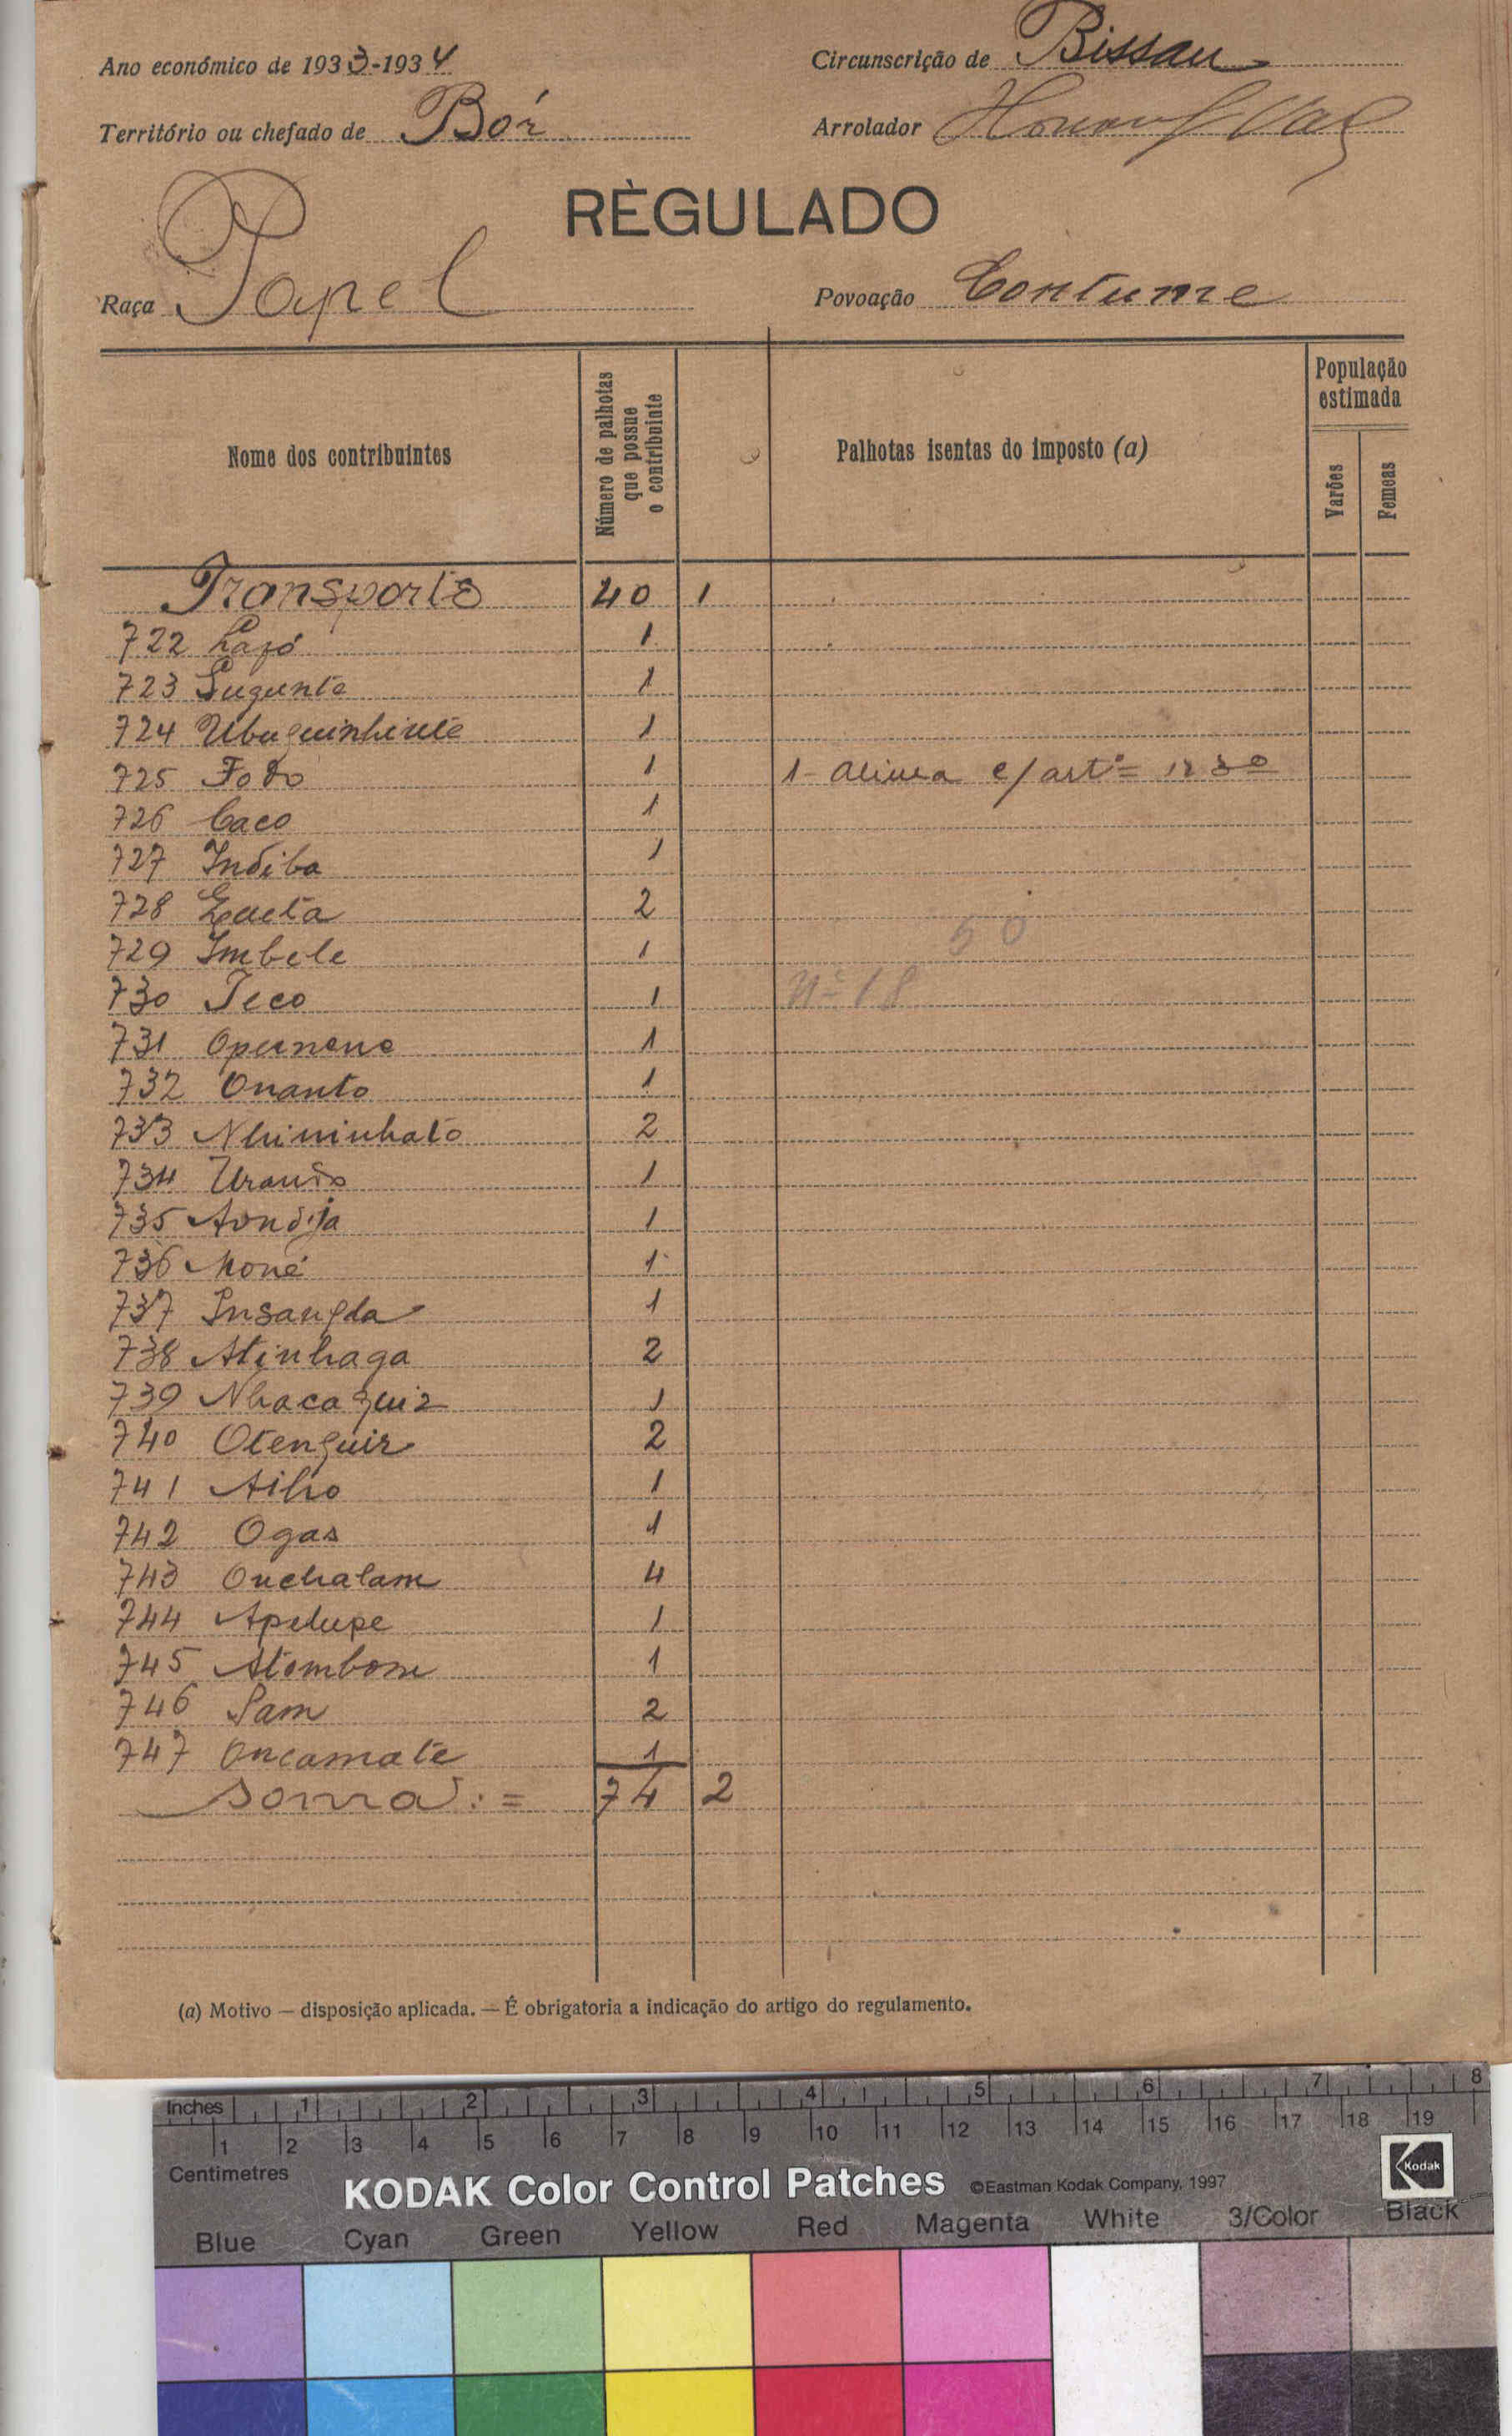 Ano económico de 1933-1934
Circunscrição de Bissau
Território ou chefado de Bór
Arrolador
RÈGULADO
Raça Papel
Povoação Contume
Nome dos contribuintes
Número de palhotas que possue o contribuinte
Palhotas isentas do imposto (a)
População estimada
Varões
Femeas
Transporte 40 1
722 1
723 1
724 1
725 Fodo 1 1 - alinea c/ artº = 123º
726 Caco 1
727 Indiba 1
728 2
729 Imbele 1
50
730 Teco 1
Nº 18
731 1
732 Onanto 1
733 Nhininhato 2
734 1
735 Aondija 1
736 Moné 1
737 1
738 Atinhaga 2
739 Nhacaguiz 1
740 Otenguir 2
741 Ailio 1
742 Ogas 1
743 Onchalam 4
744 Apelupe 1
745 Atombom 1
746 Sam 2
747 Oncamate 1
Soma := 74 2
(a) Motivo — disposição aplicada. — É obrigatoria a indicação do artigo do regulamento.
Inches 1 2 3 4 5 6 7 8
1 2 3 4 5 6 7 8 9 10 11 12 13 14 15 16 17 18 19
Centimetres
KODAK Color Control Patches ©Eastman Kodak Company, 1997 Kodak
Blue Cyan Green Yellow Red Magenta White 3/Color Black